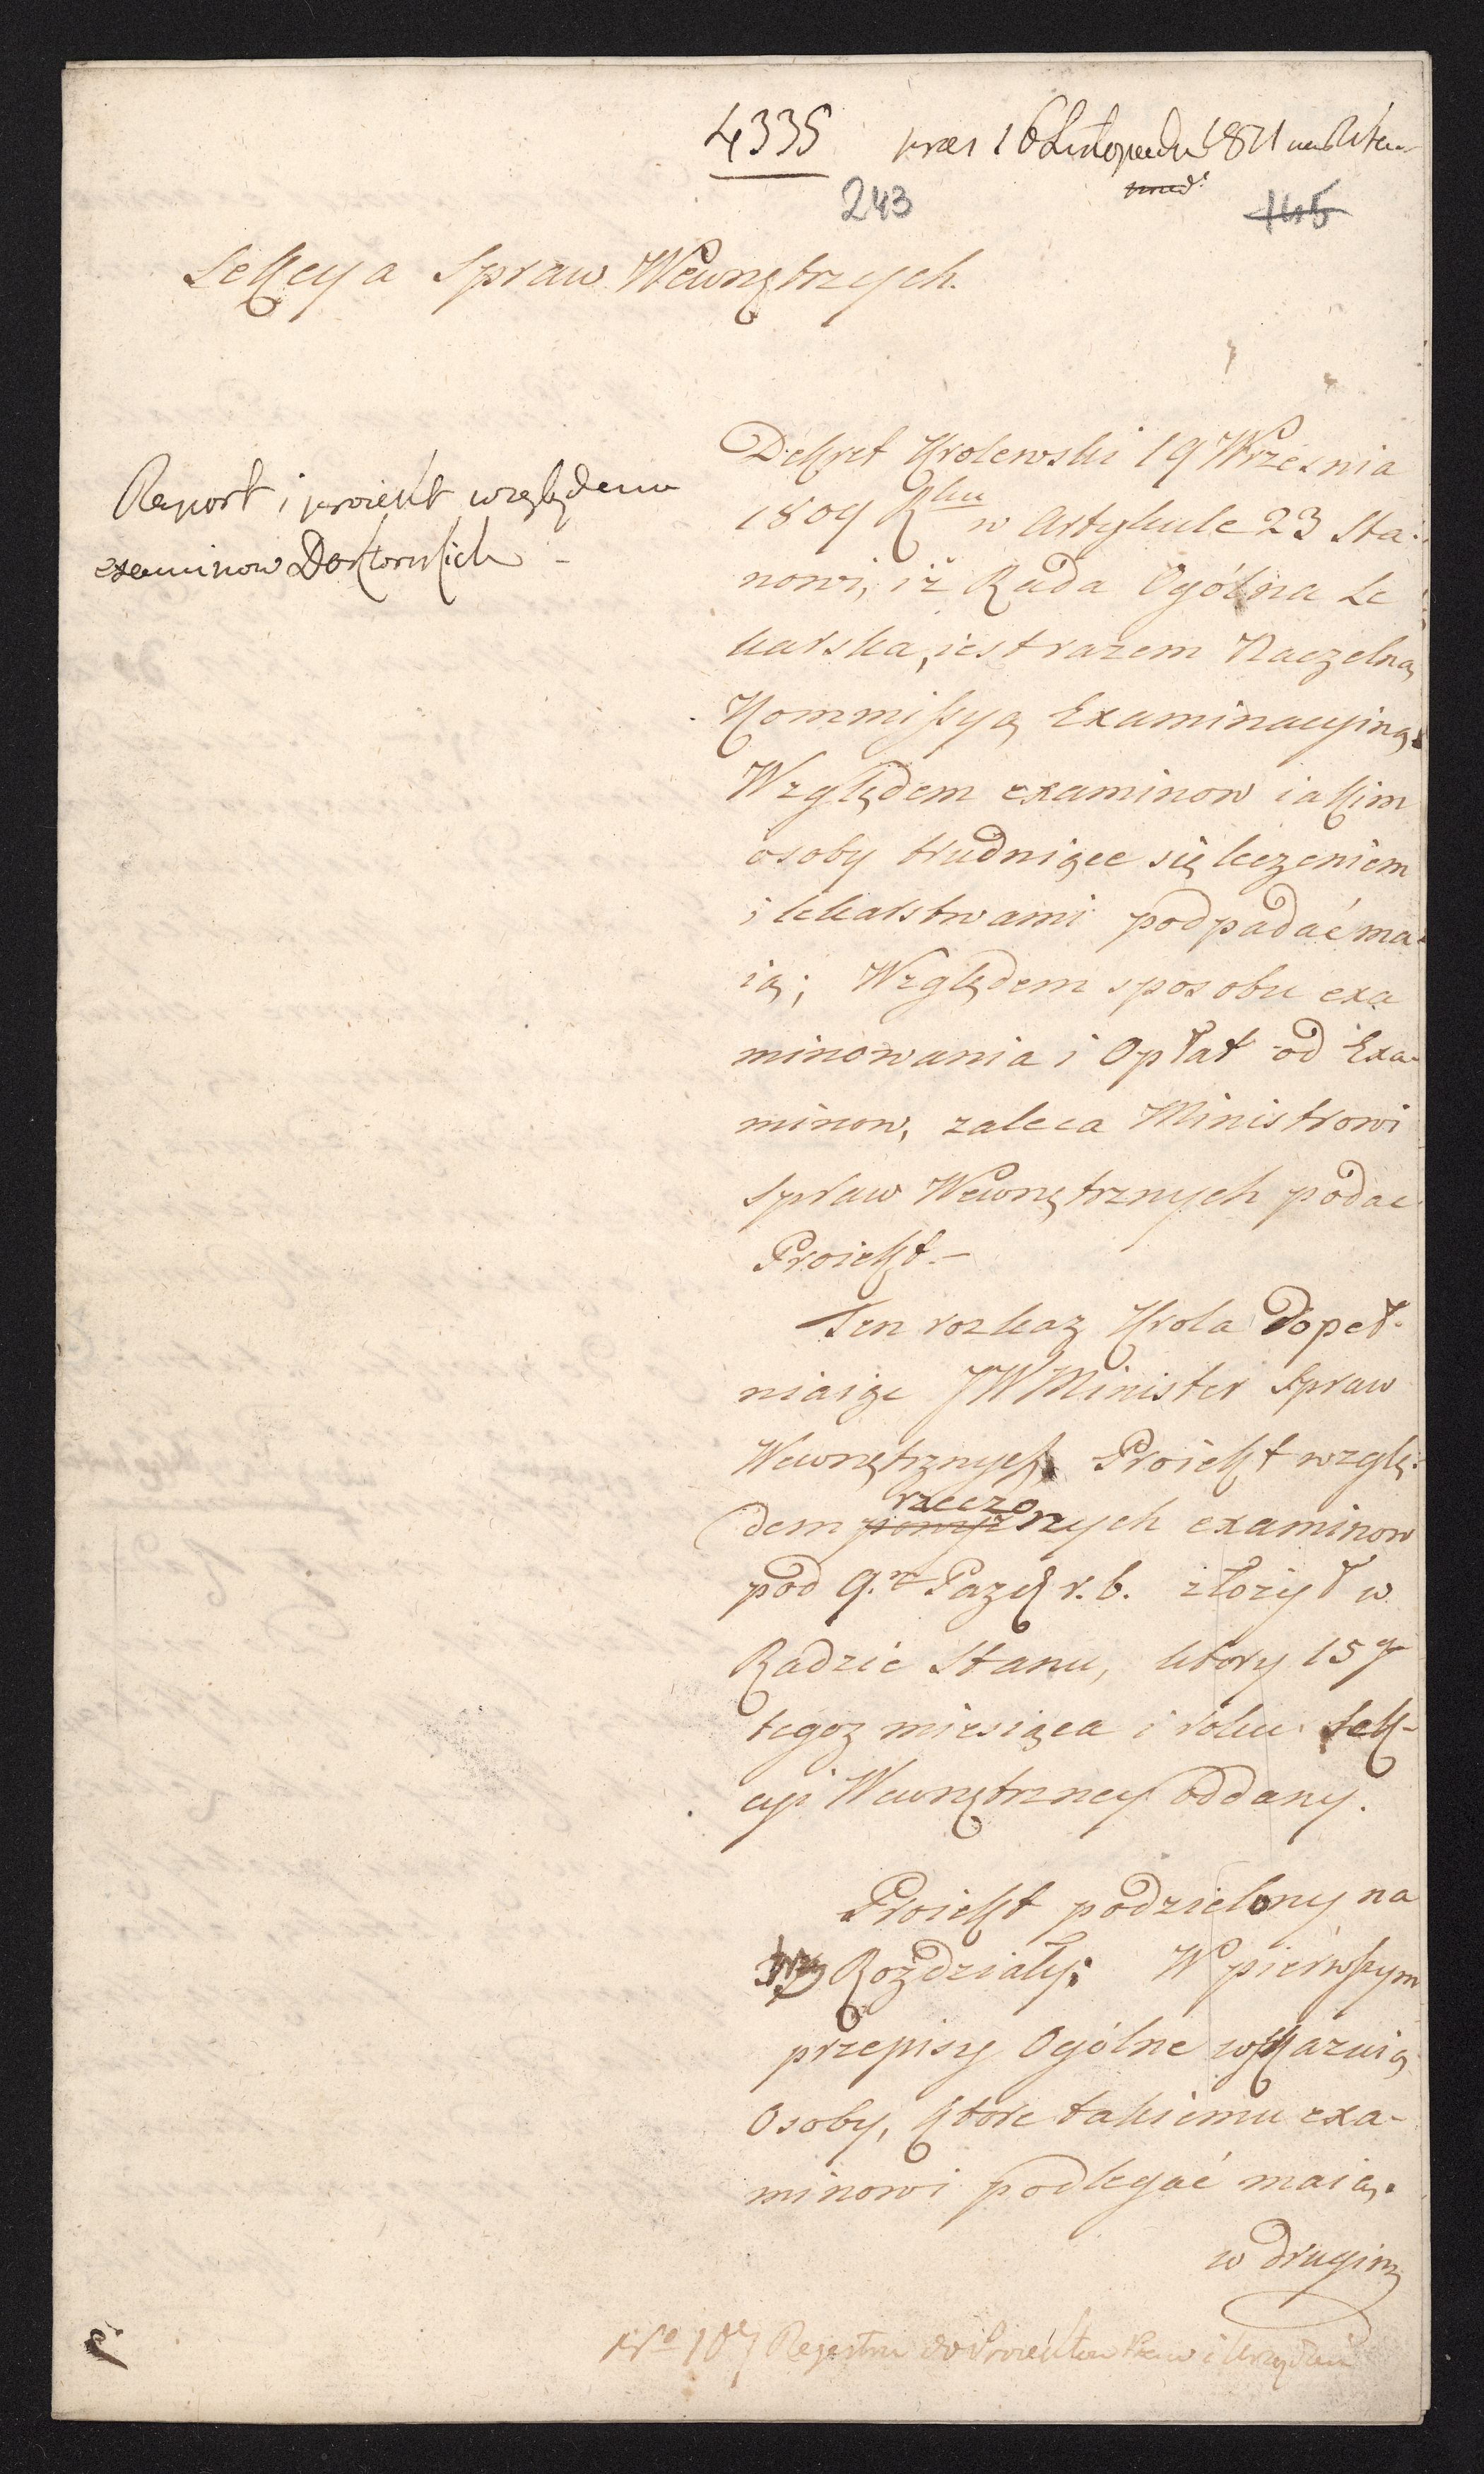 4335 prez 16 Listopada 1811
243 145
Sekcya Spraw Wewnętrzych.
Raport i proiekt względem
examinow Doktorskich -
Dekret Krolewski 19 Wrzesnia
1809 Rku w Artykule 23 Sta-
nowi, iż Rada Ogólna Le
karska, iest razem Naczelną
Kommissyą Examinacyiną.
Względem examinow iakim
osoby trudniące się leczeniem
i lekarstwami podpadać ma-
ią; Względem sposobu exa
minowania i Opłat od Exa-
minow, zaleca Ministrowi
Spraw Wewnętrznych podac
Proiekt.-
Ten rozkaz Krola dopeł-
niaiąc JW Minister Spraw
Wewnętrznych Proiekt wzglę-
dem rzeczonych examinow
pod 9.m Pazd r. b. złożył w
Radzie Stanu, ktory 15go
tegoz miesiąca i roku Sek-
cyi Wewnętrzney oddany.
Proiekt podzielony na
trzy Rozdziały; W pierwszym
przepisy Ogólne wskazuią
Osoby, ktore takiemu exa-
minowi podlegać maią.
w drugim
No 107 Regestru do Proiektow Praw i Urządzeń